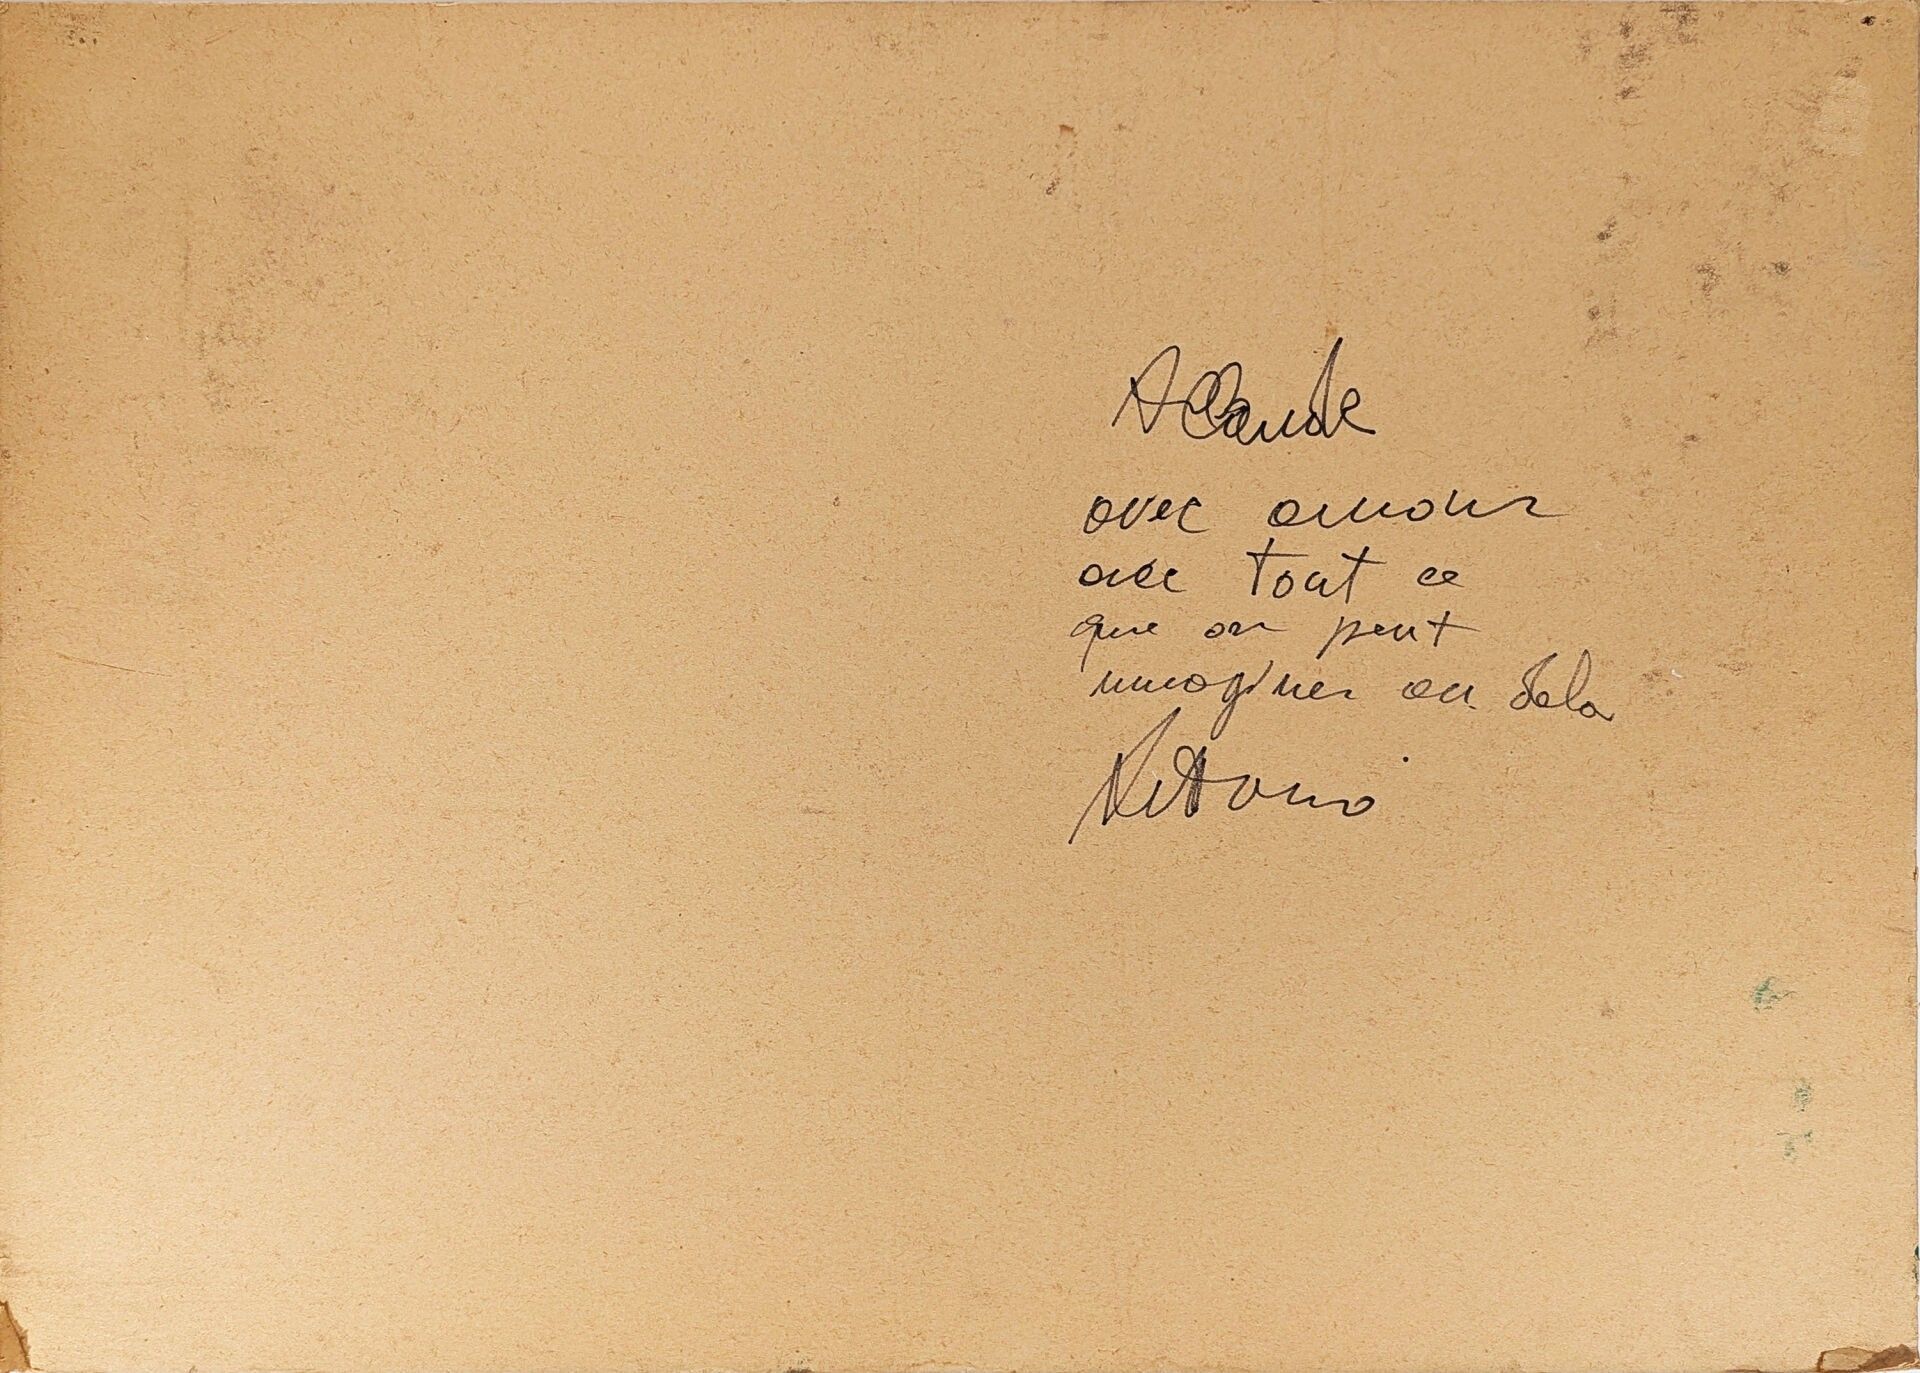 A Claude
avec amour
avec tout ce
que on peut
immaginer au dela
Vittorio